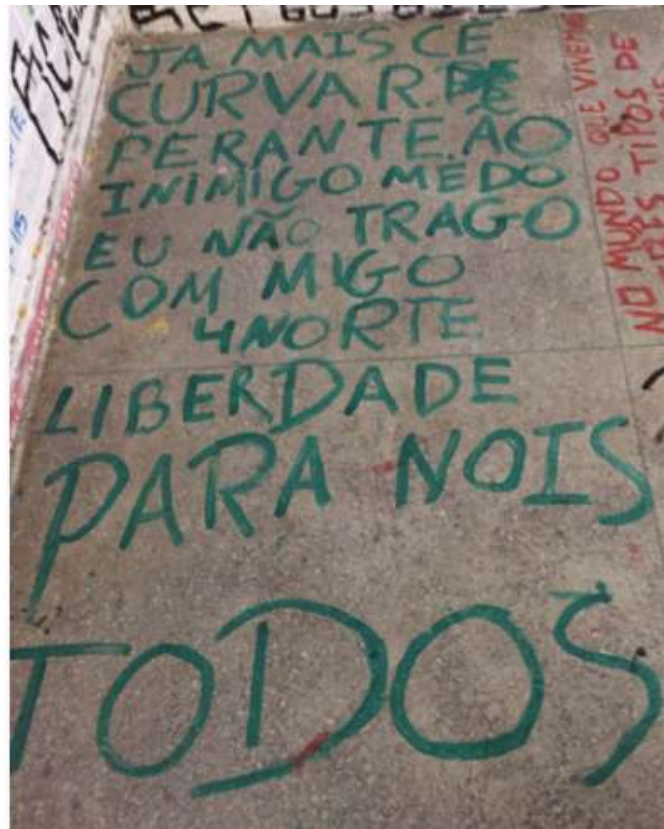 JA MAIS CE
CURVAR.
PERANTE.AO
INIMIGO MEDO
EU NÃO TRAGO
COM MIGO
4NORTE
LIBERDADE
PARA NOIS
TODOS
NO MUNDO QUE VIVEMOS
TIPOS DE